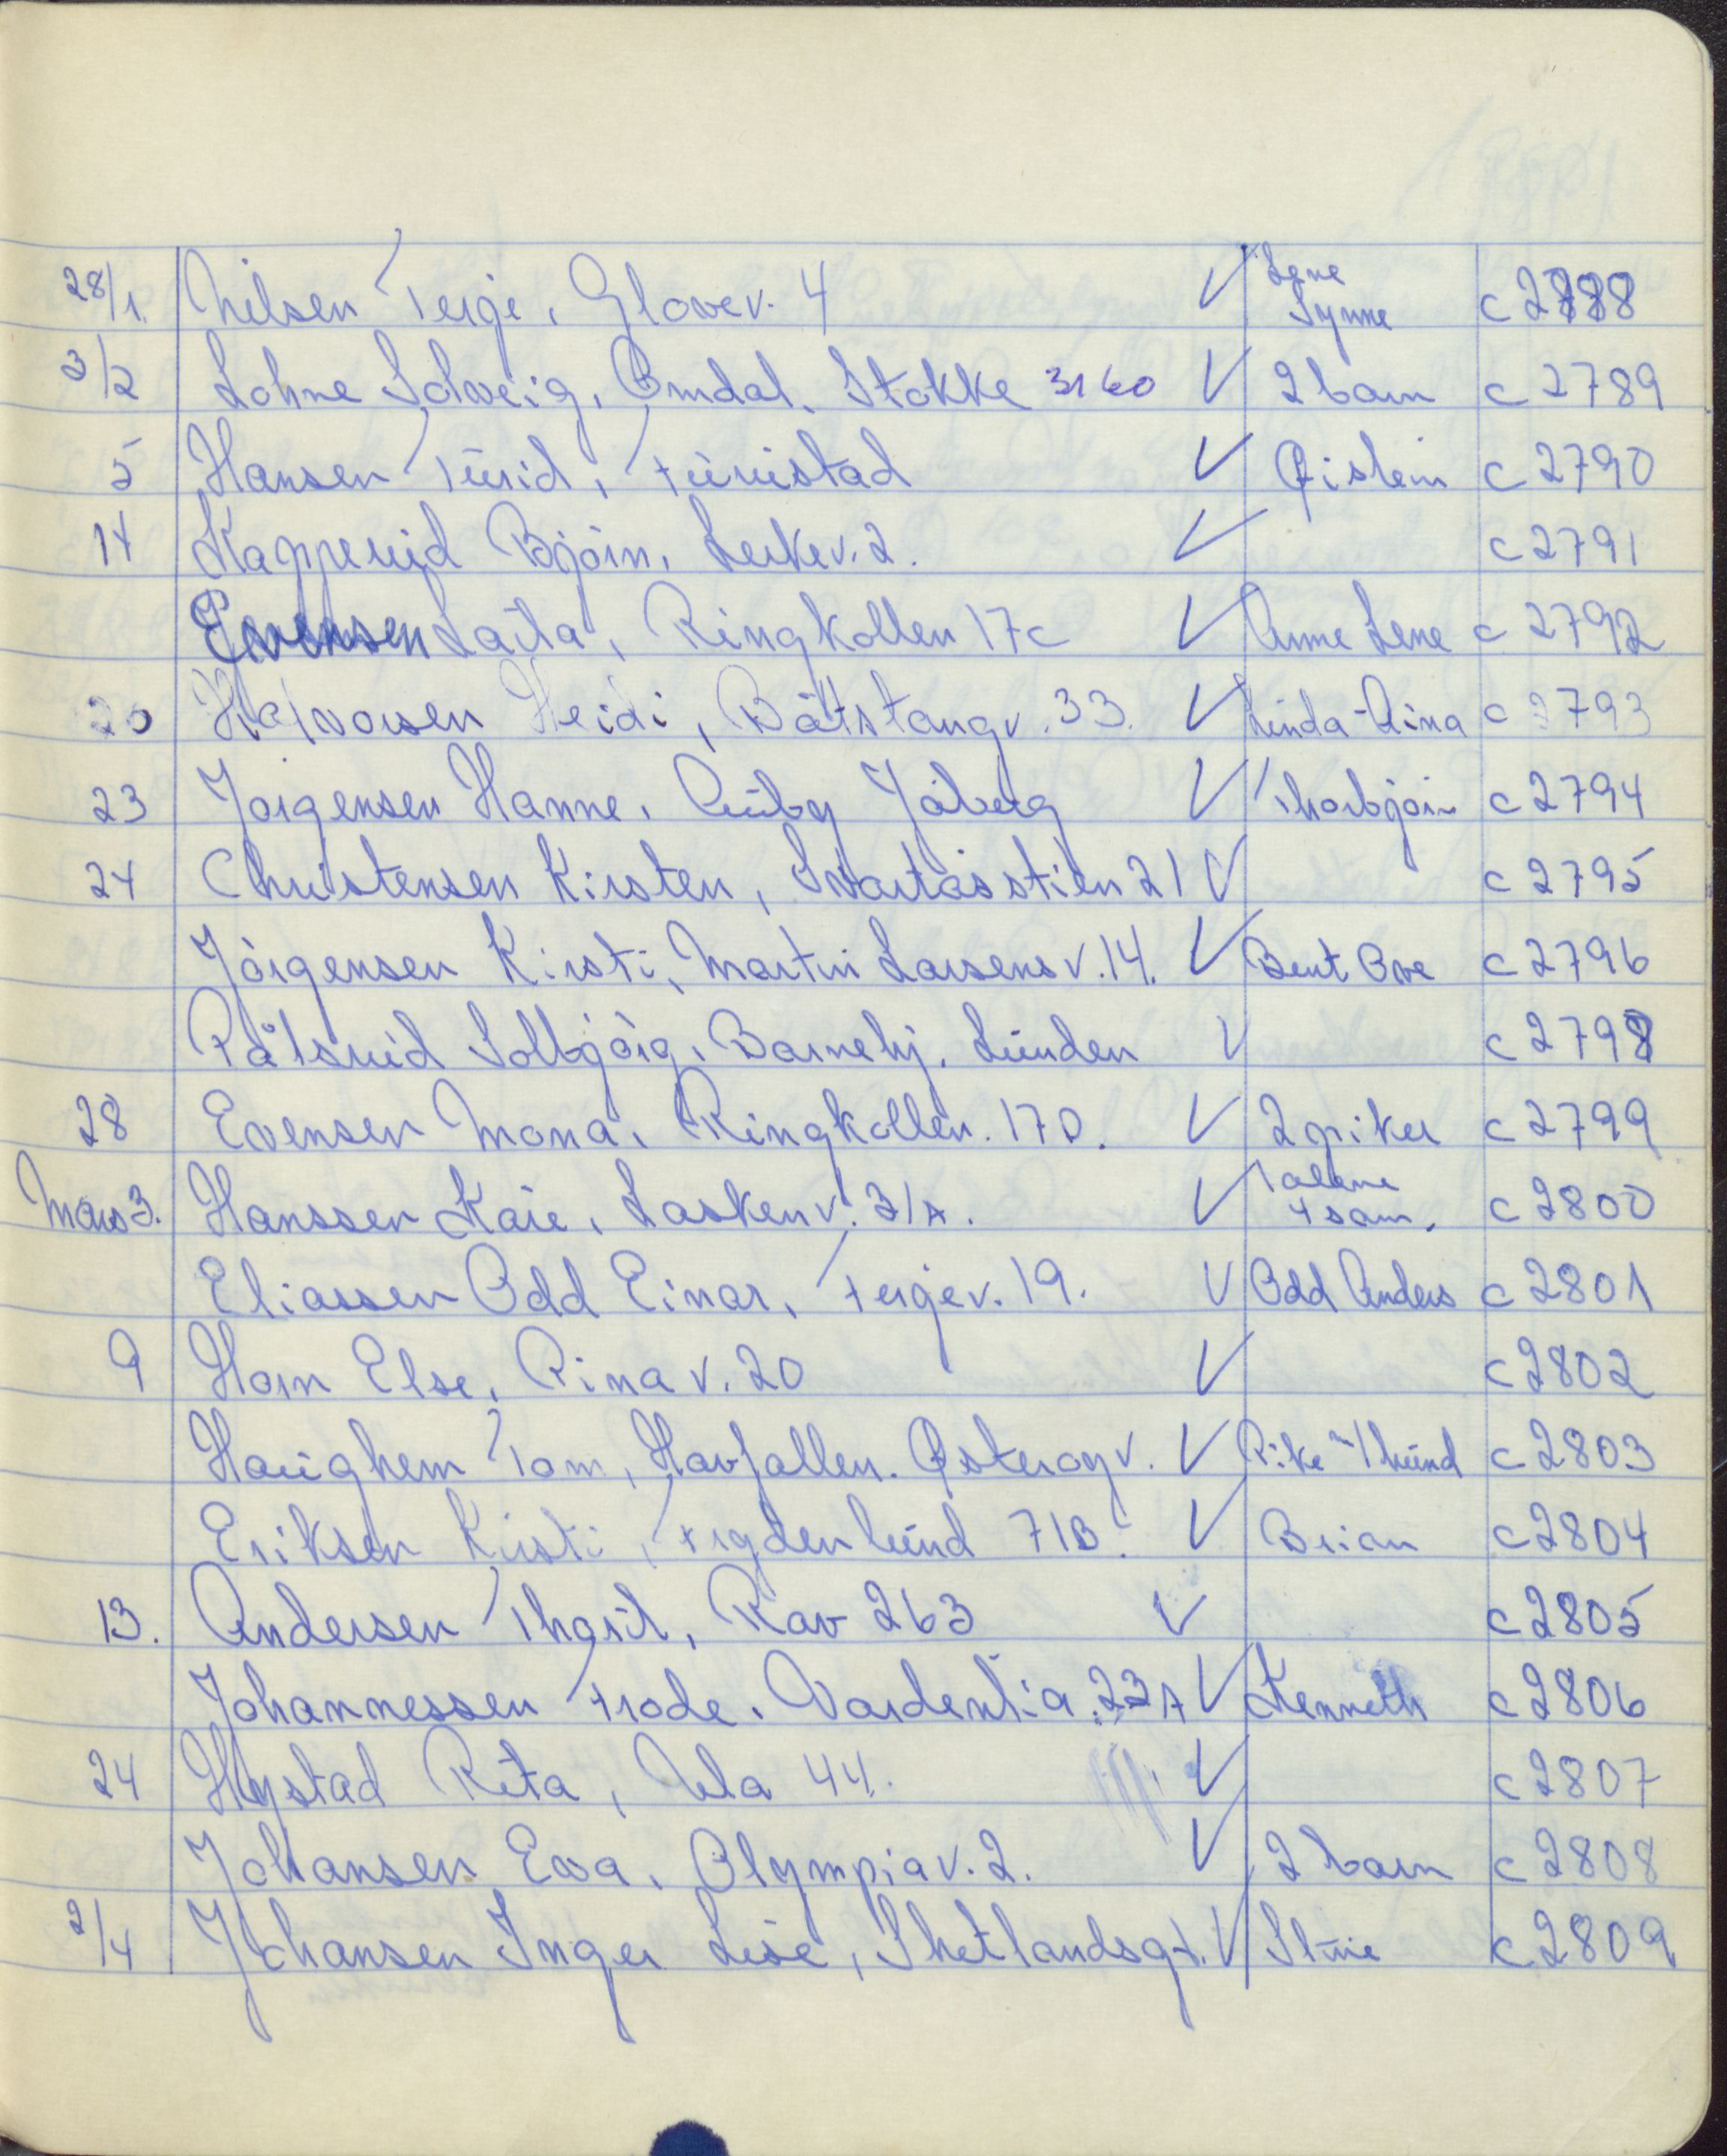 28/1 Nilsen Terje, Glovev. 4 V Lene Synne c 2788
3/2 Lohne Solveig, Omdal. Stokke 3160 V 2 barn c 2789
5 Hansen Turid, Furustad V Øistein c 2790
14 Kapperud Bjørn, Leikev. 2. V c 2791
Evensen Laila, Ringkollen 17c V Anne Lene c 2792
20 Halvorsen Heidi, Båtstangv. 33. V Linda-Aina c 2793
23 Jørgensen Hanne, Auby Jåberg V Thorbjørn c 2794
24 Christensen Kirsten, Svartåsstien 21 V c 2795
Jørgensen Kirsti, Martin Larsens v. 14. V Bent Ove c 2796
Pålsrud Solbjørg, Barnehj. Lunden V c 2798
28 Evensen Mona, Ringkollen. 17D. V 2 piker c 2799
Mars 3. Hanssen Kåre, Laskenv. 31A. V 1 alene 4 sam. c 2800
Eliassen Odd Einar, Fergev. 19. V Odd Anders c 2801
9 Horn Else, Pina v. 20 V c 2802
Haughem Tom, Havfallen. Østerøyv. V Pike m/hund c 2803
Eriksen Kirsti, Frydenlund 71B. V Brian c 2804
13. Andersen Thoril, Rav 263 V c 2805
Johannessen Frode. Vardenlia. 23A V Kenneth c 2806
24 Hystad Rita, Ula 44. V c 2807
Johansen Eva, Olympiav. 2. V 2 barn c 2808
2/4 Johansen Inger Lise, Shetlandsgt. V Stine c 2809